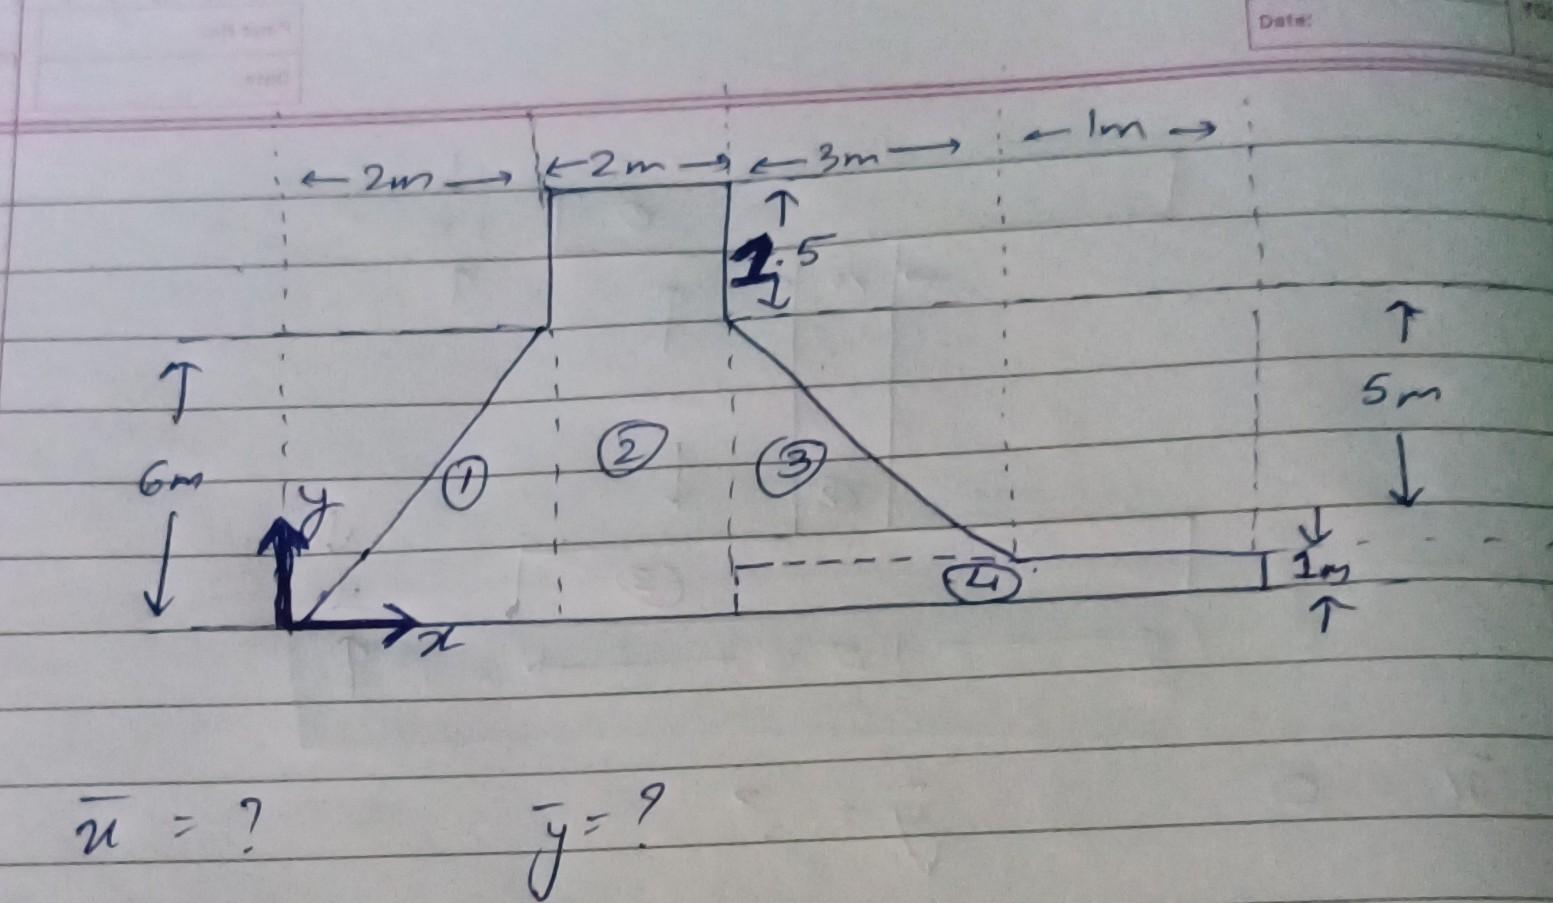 Date:
← 2m → ← 2m → ← 3m → ← 1m →
1.5
5m
6m
① ② ③
y
④ 1m
x
x̄ = ? ȳ = ?